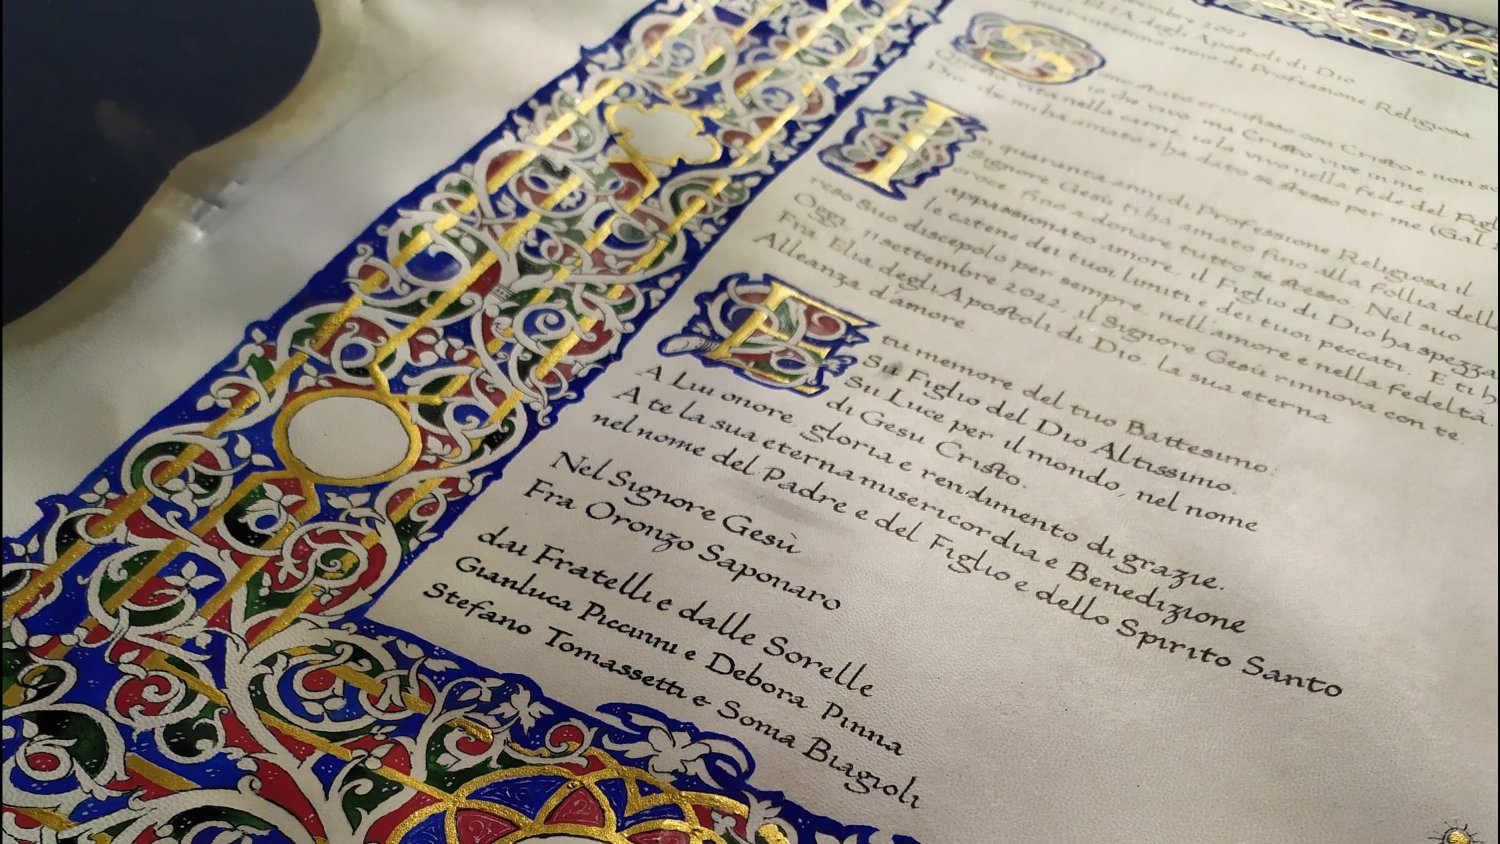 embre 2022
ELIA degli Apostoli di Dio
quarantesimo anno di Professione Religiosa
Sono stato crocifisso con Cristo e non so
io che vivo, ma Cristo vive in me.
Questa vita nella carne, io la vivo nella fede del Figl
Dio che mi ha amato e ha dato se stesso per me (Gal 2
In quaranta anni di Professione Religiosa il
Signore Gesù ti ha amato fino alla follia della
croce, fino a donare tutto se stesso. Nel suo
appassionato amore, il Figlio di Dio ha spezza
le catene dei tuoi limiti e dei tuoi peccati. E ti h
reso suo discepolo per sempre, nell'amore e nella fedeltà.
Oggi, 11 settembre 2022, il Signore Gesù rinnova con te,
Fra Elia degli Apostoli di Dio, la sua eterna
Alleanza d'amore.
E tu memore del tuo Battesimo:
Sii Figlio del Dio Altissimo.
Sii Luce per il mondo, nel nome
di Gesù Cristo.
A Lui onore, gloria e rendimento di grazie.
A te la sua eterna misericordia e Benedizione
nel nome del Padre e del Figlio e dello Spirito Santo
Nel Signore Gesù
Fra Oronzo Saponaro
dai Fratelli e dalle Sorelle
Gianluca Piccinni e Debora Pinna
Stefano Tomassetti e Sonia Biagioli